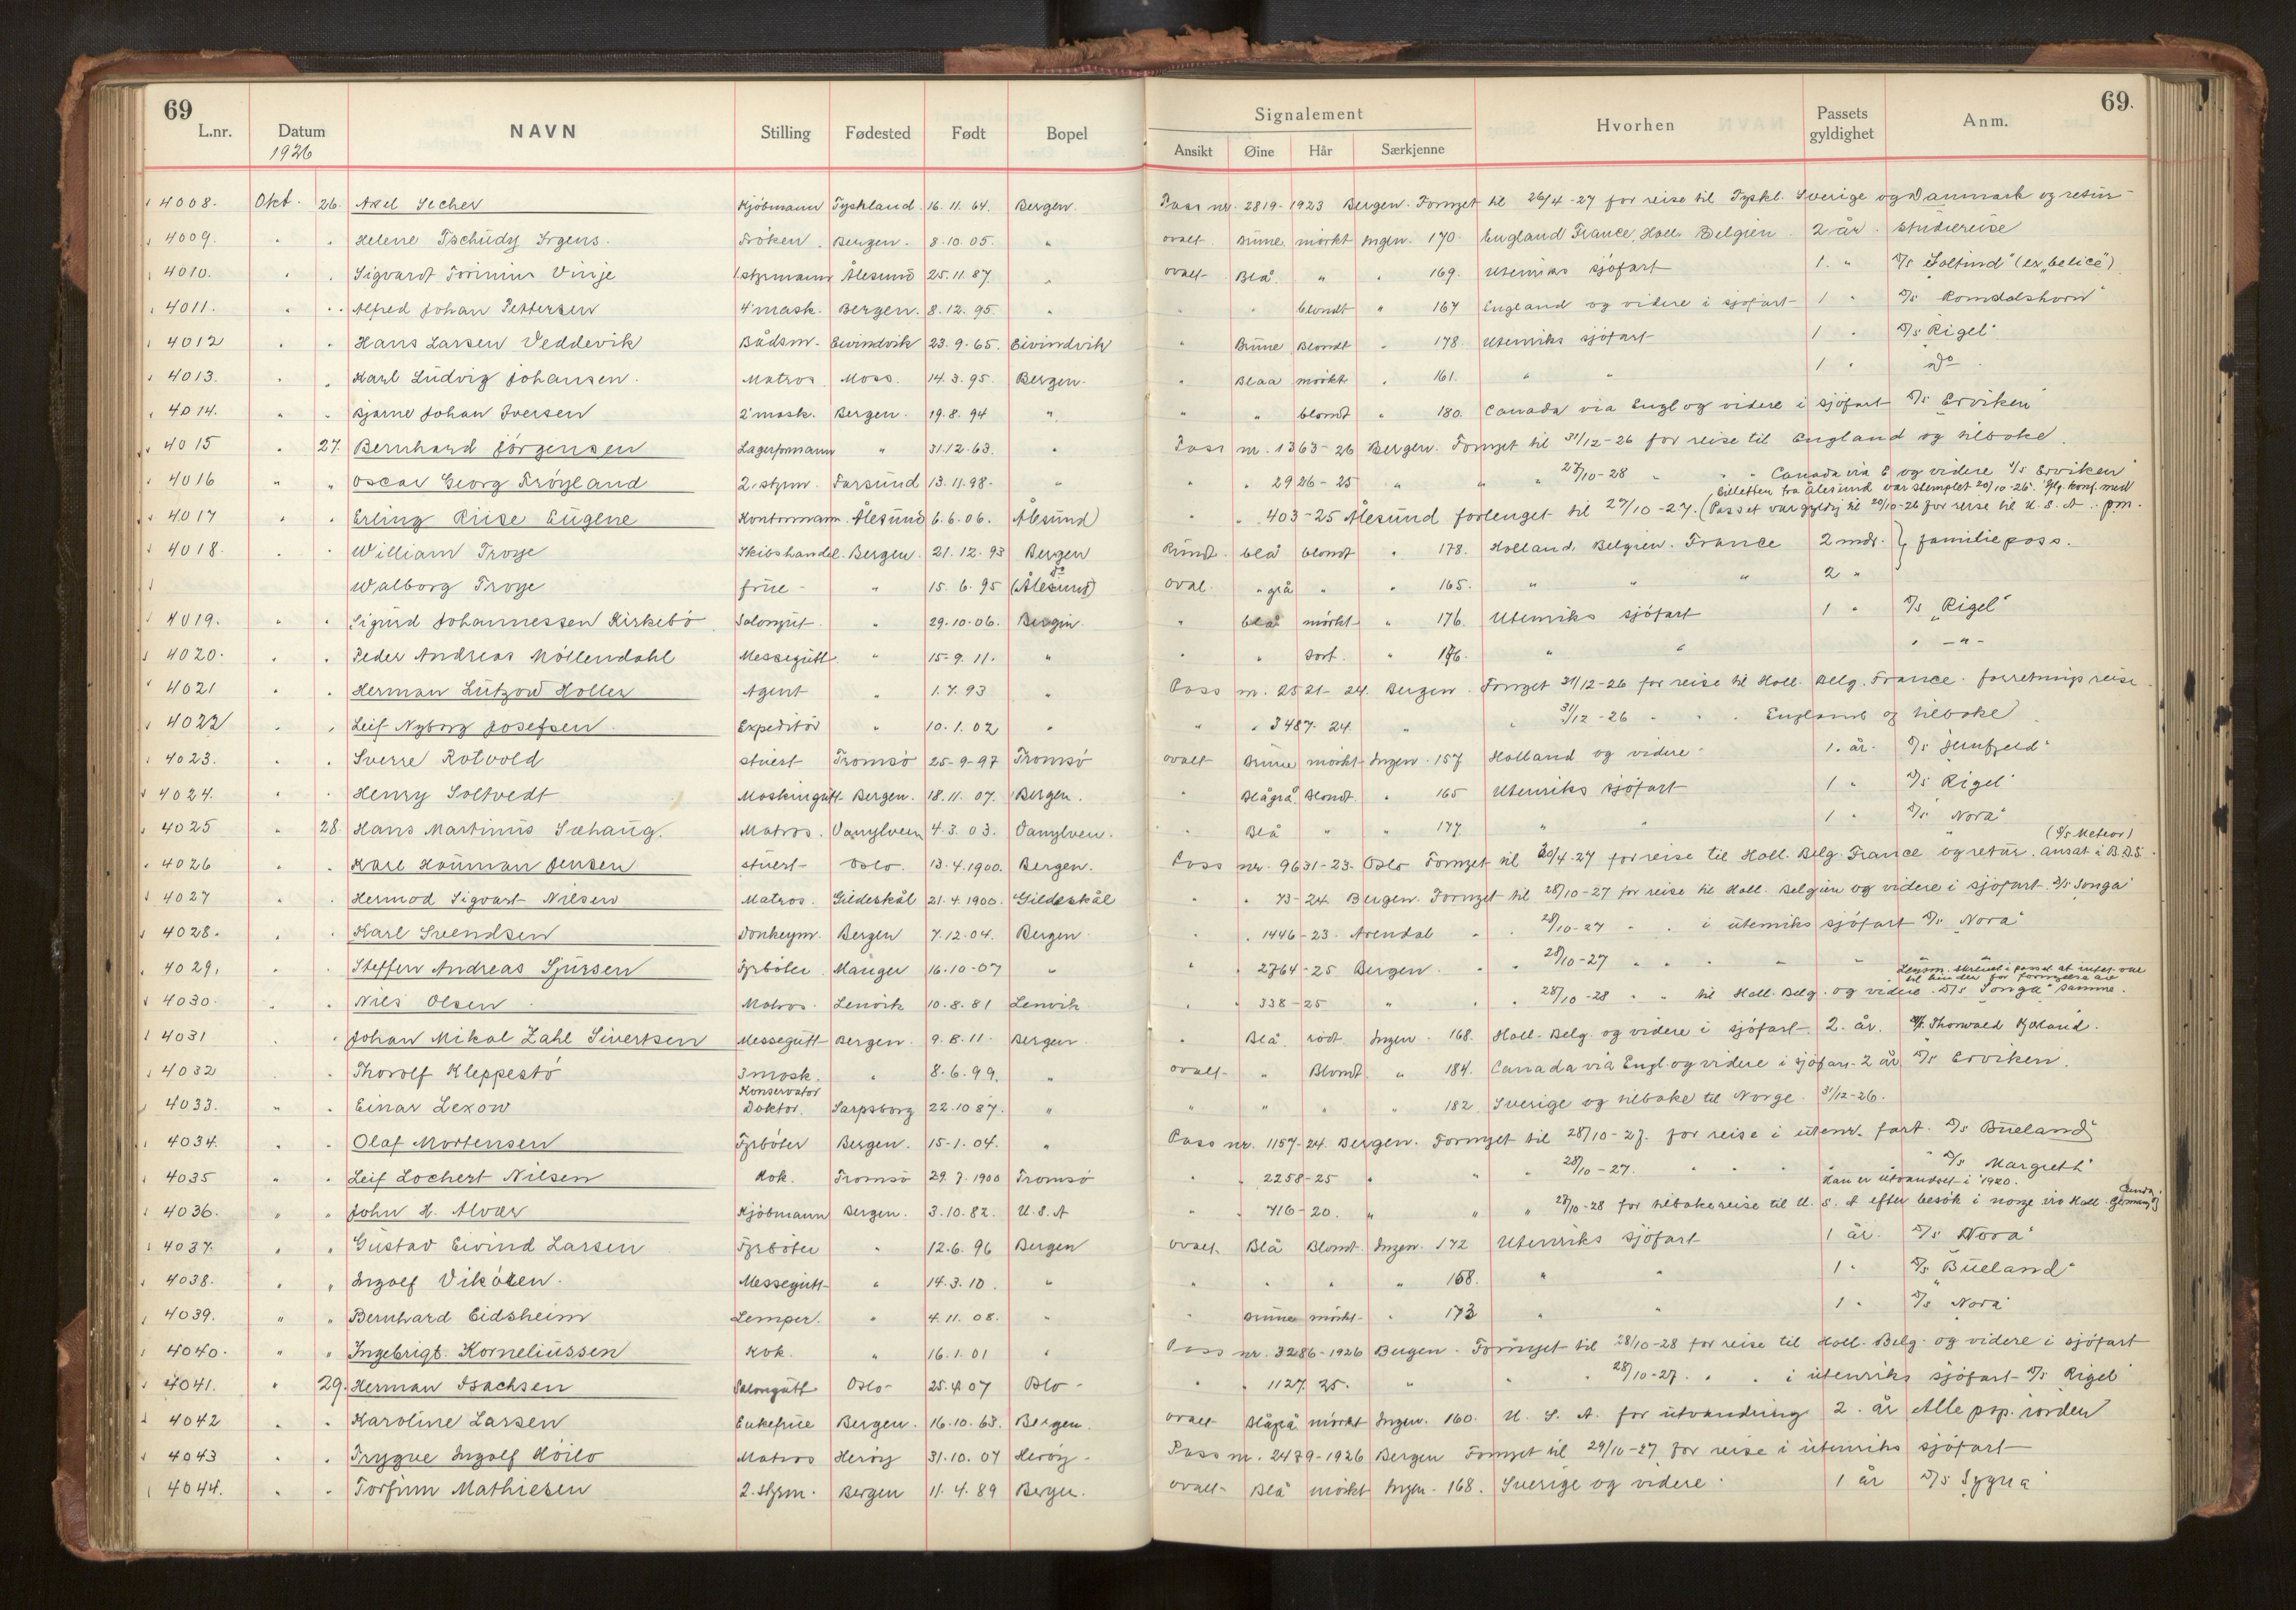 69
69.
L.nr. Datum NAVN Stilling Fødested Født Bopel Signalement Hvorhen Passets gyldighet Anm.
1926 Ansikt Øine Hår Særkjenne
4008. Okt. 26. Axel Secher Kjöbmann Tyskland. 16.11.64. Bergen. Pass nr. 2819-1923 Bergen. Fornyet til 26/4-27 for reise til Tyskl. Sverige og Danmark og retur
4009. " " Helene Tschudy Irgens. Fröken. Bergen. 8.10.05. " ovalt Brune mörkt Ingen. 170. England France Holl. Belgien 2 år. studiereise
4010. " " Sigvardt Vinje 1. styrmann Ålesund 25.11.87. " ovalt Blå " " 169. Utenriks sjöfart 1. " D/s "Soltind" (ex "belice")
4011. " " Alfred Johan Pettersen 4' mask. Bergen. 8.12.95. " " " blondt " 167 England og videre i sjöfart 1 " D/s "Romdalshorn"
4012 " " Hans Larsen Veddevik Bådsm. Eivindvik 23.9.65. Eivindvik " Brune Blondt " 178. Utenriks sjöfart 1 " D/s "Rigel"
4013. " " Karl Ludvig Johansen. Matros Moss. 14.3.95. Bergen. " Blaa mörkt " 161. " " 1 " do
4014. " " Bjarne Johan Iversen 2' mask. Bergen. 19.8.94 " " " blondt " 180. Canada via Engl og videre i sjöfart D/s "Erviken"
4015 " 27. Bernhard Jörgensen Lagerformann " 31.12.63. " Pass nr. 1363-26 Bergen. Fornyet til 31/12-26 for reise til England og tilbake.
4016 " " Oscar Georg Fröyland 2. styrm. Farsund 13.11.98. " " " 2926-25 " " " 27/10-28 " " " Canada via E og videre D/s "Erviken"
Billetten fra Ålesund var stemplet 20/10-26. flg. konf. med
4017 " " Erling Riise Eugene Kontormann Ålesund 6.6.06. Ålesund " " 403-25 Ålesund forlenget til 27/10-27. (Passet var gyldig til 20/10-26 for reise til U.S.A. pm.
4018. " " William Troye Skibshandel. Bergen. 21.12.93 Bergen Rundt. blå blondt " 178. Holland, Belgien. France 2 mdr. } familiepass.
Walborg Troye frue " 15.6.95 do (Ålesund) oval. " grå " " 165. " " " 2 "
4019. " " Sigurd Johannessen Kirkebö Salongut. " 29.10.06. Bergen. " blå mörkt " 176. Utenriks sjöfart 1 " D/s "Rigel"
4020. " " Peder Andreas Möllendahl Messegutt. " 15-9.11. " " " sort. " 176. " " " -"-
4021 " " Herman Lützow Holler Agent " 1.7.93 " Pass nr. 2521-24. Bergen. Fornyet 31/12-26 for reise til Holl. Belg. France. forretnings reise.
4022 " " Leif Nyborg Josefsen. Expeditör " 10.1.02 " " " 3487-24. " " 31/12-26 " " " England og tilbake.
4023. " " Sverre Rotvold stuest Tromsö 25-9-97 Tromsö ovalt Brune mörkt Ingen. 157 Holland og videre 1. år. D/s "Jernfjeld"
4024. " " Henry Soltvedt Maskingutt Bergen. 18.11.07. Bergen. " Blågrå Blondt. " 165 Utenriks sjöfart 1 " D/s "Rigel"
4025 " 28. Hans Martinus Sæhaug. Matros. Vanylven 4.3.03. Vanylven. " Blå " " 177. " " 1 " D/s "Nora"
(D/s Meteor)
4026 " " Karl Hauman Jensen stuert Oslo. 13.4.1900. Bergen. Pass nr. 9631-23. Oslo Fornyet til 30/4-27 for reise til Holl. Belg. France og retur. ansat i B.D.S.
4027 " " Hermod Sigvart Nilsen Matros. Gildeskål 21.4.1900. Gildeskål " " 73-24. Bergen. Fornyet til 28/10-27 for reise til Holl. Belgien og videre i sjöfart. D/s "Songa"
4028. " " Karl Svendsen Donkeym. Bergen 7.12.04. Bergen. " " 1446-23. Arendal " " 28/10-27 " " i utenriks sjöfart D/s "Nora"
4029. " " Steffen Andreas Sjursen Fyrböter. Manger 16-10-07 " " " 2764-25 Bergen. " " 28/10-27 " " " "
Lensm. skrevet i passet at intet var
til hinder for fornyelse av
4030. " " Nils Olsen. Matros. Lenvik 10.8.81 Lenvik " " 338-25 " " " 28/10-28 " " til Holl. Belg. og videre. D/s "Songa" samme.
4031 " " Johan Mikal Zahl Sivertsen Messegutt Bergen. 9.8.11. Bergen. " Blå rödt Ingen. 168. Holl. Belg. og videre i sjöfart. 2. år. M/s. Thorvald
4032 " " Thorolf Kleppestö 3 mask. " 8-6.99. " ovalt " Blondt. " 184. Canada via Engl. og videre i sjöfart. 2 år D/s "Erviken.
Konservator
4033. " " Einar Lexow Doktor. Sarpsborg 22.10 87. " " " " " 182 Sverige og tilbake til Norge. 31/12-26.
4034. " " Olaf Mortensen Fyrböter Bergen. 15-1.04. " Pass nr. 1157-24. Bergen. Fornyet til 28/10-27. for reise i utenr. fart. D/s "Bueland"
4035 " " Leif Lochert Nilsen Kok. Tromsö 29.7.1900 Tromsö " " 2258-25 " " " 28/10-27. " " " D/s "Margreth"
Han er utvandret i 1920.
4036. " " John H. Alvær Kjöbmann Bergen. 3.10.82. U.S.A " " 716-20. " " " 28/10-28 for tilbakereise til U.S.A efter besök i norge via Holl. Germany
4037. " " Gustav Eivind Larsen Fyrböter " 12.6.96 Bergen ovalt. Blå Blondt. Ingen. 172 Utenriks sjöfart 1 år. D/s "Nora"
4038. " " Ingolf Vikören. Messegutt " 14.3.10. " " " " " 168. " " 1 " D/s "Bueland"
4039. " " Bernhard Eidsheim Lemper. " 4.11.08. " " Brune mörkt. " 173 " " 1 " D/s "Nora"
4040. " " Ingebrigt Korneliussen Kok. " 16.1.01 " Pass nr. 3286-1926 Bergen. Fornyet til 28/10-28 for reise til Holl. Belg. og videre i sjöfart
4041. " 29. Herman Isachsen Salongutt Oslo 25.4.07 Oslo " " 1127. 25. " " " 28/10-27. " " i utenriks sjöfart D/s "Rigel"
4042 " " Karoline Larsen Enkefrue Bergen. 16.10.63. Bergen. ovalt Blågrå mörkt Ingen. 160. U.S.A. for utvandring 2. år Alle pap. i orden
4043 " " Trygve Ingolf Höilo Matros Heröy 31.10.07 Heröy. Pass nr. 2489-1926 Bergen Fornyet til 29/10-27 for reise i utenriks sjöfart
4044. " " Torfinn Mathiesen 2. styrm. Bergen 11.4.89 Bergen. ovalt. Blå mörkt Ingen. 168. Sverige og videre. 1 år D/s "Sygna"